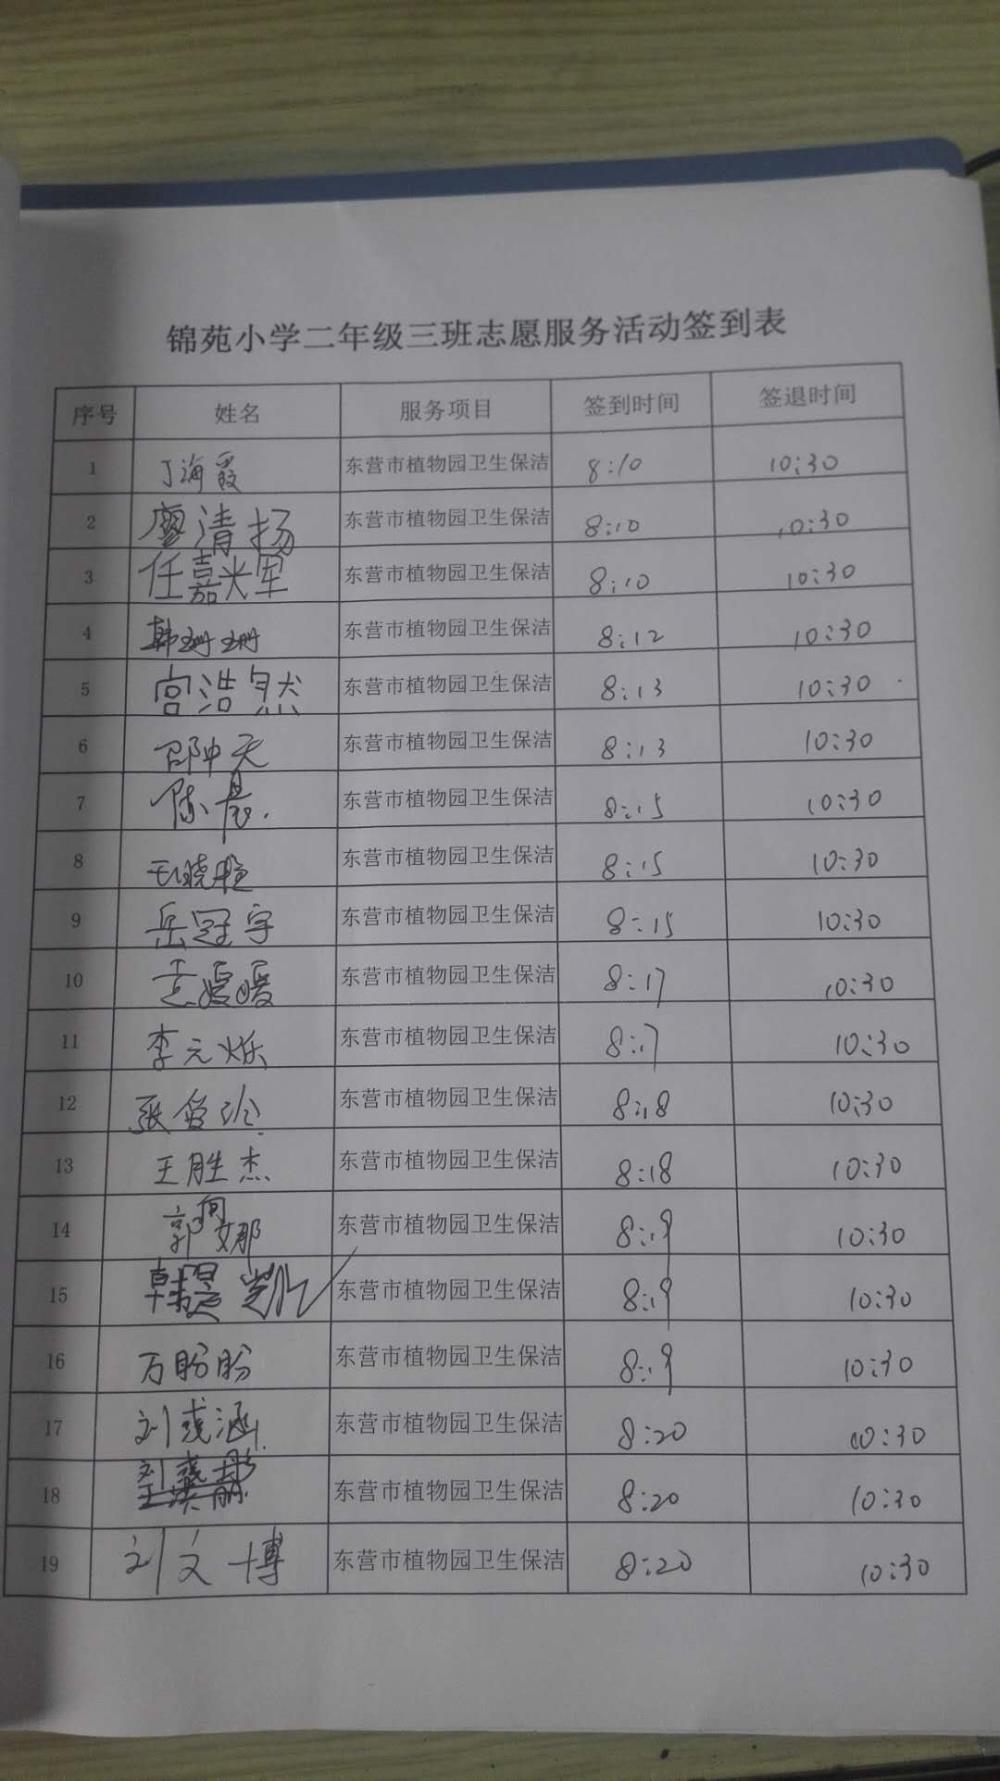 锦苑小学二年级三班志愿服务活动签到表
序号 姓名 服务项目 签到时间 签退时间
1 丁海霞 东营市植物园卫生保洁 8:10 10:30
2 廖清扬 东营市植物园卫生保洁 8:10 10:30
3 任嘉米军 东营市植物园卫生保洁 8:10 10:30
4 韩珊珊 东营市植物园卫生保洁 8:12 10:30
5 宫浩然 东营市植物园卫生保洁 8:13 10:30
6 邵冲天 东营市植物园卫生保洁 8:13 10:30
7 陈晨 东营市植物园卫生保洁 8:15 10:30
8 王晓艳 东营市植物园卫生保洁 8:15 10:30
9 岳冠宇 东营市植物园卫生保洁 8:15 10:30
10 袁媛媛 东营市植物园卫生保洁 8:17 10:30
11 李元烁 东营市植物园卫生保洁 8:17 10:30
12 张 东营市植物园卫生保洁 8:18 10:30
13 王胜杰 东营市植物园卫生保洁 8:18 10:30
14 郭娜 东营市植物园卫生保洁 8:19 10:30
15 韩昊凯 东营市植物园卫生保洁 8:19 10:30
16 万盼盼 东营市植物园卫生保洁 8:19 10:30
17 刘彧涵 东营市植物园卫生保洁 8:20 10:30
18 东营市植物园卫生保洁 8:20 10:30
19 刘文博 东营市植物园卫生保洁 8:20 10:30